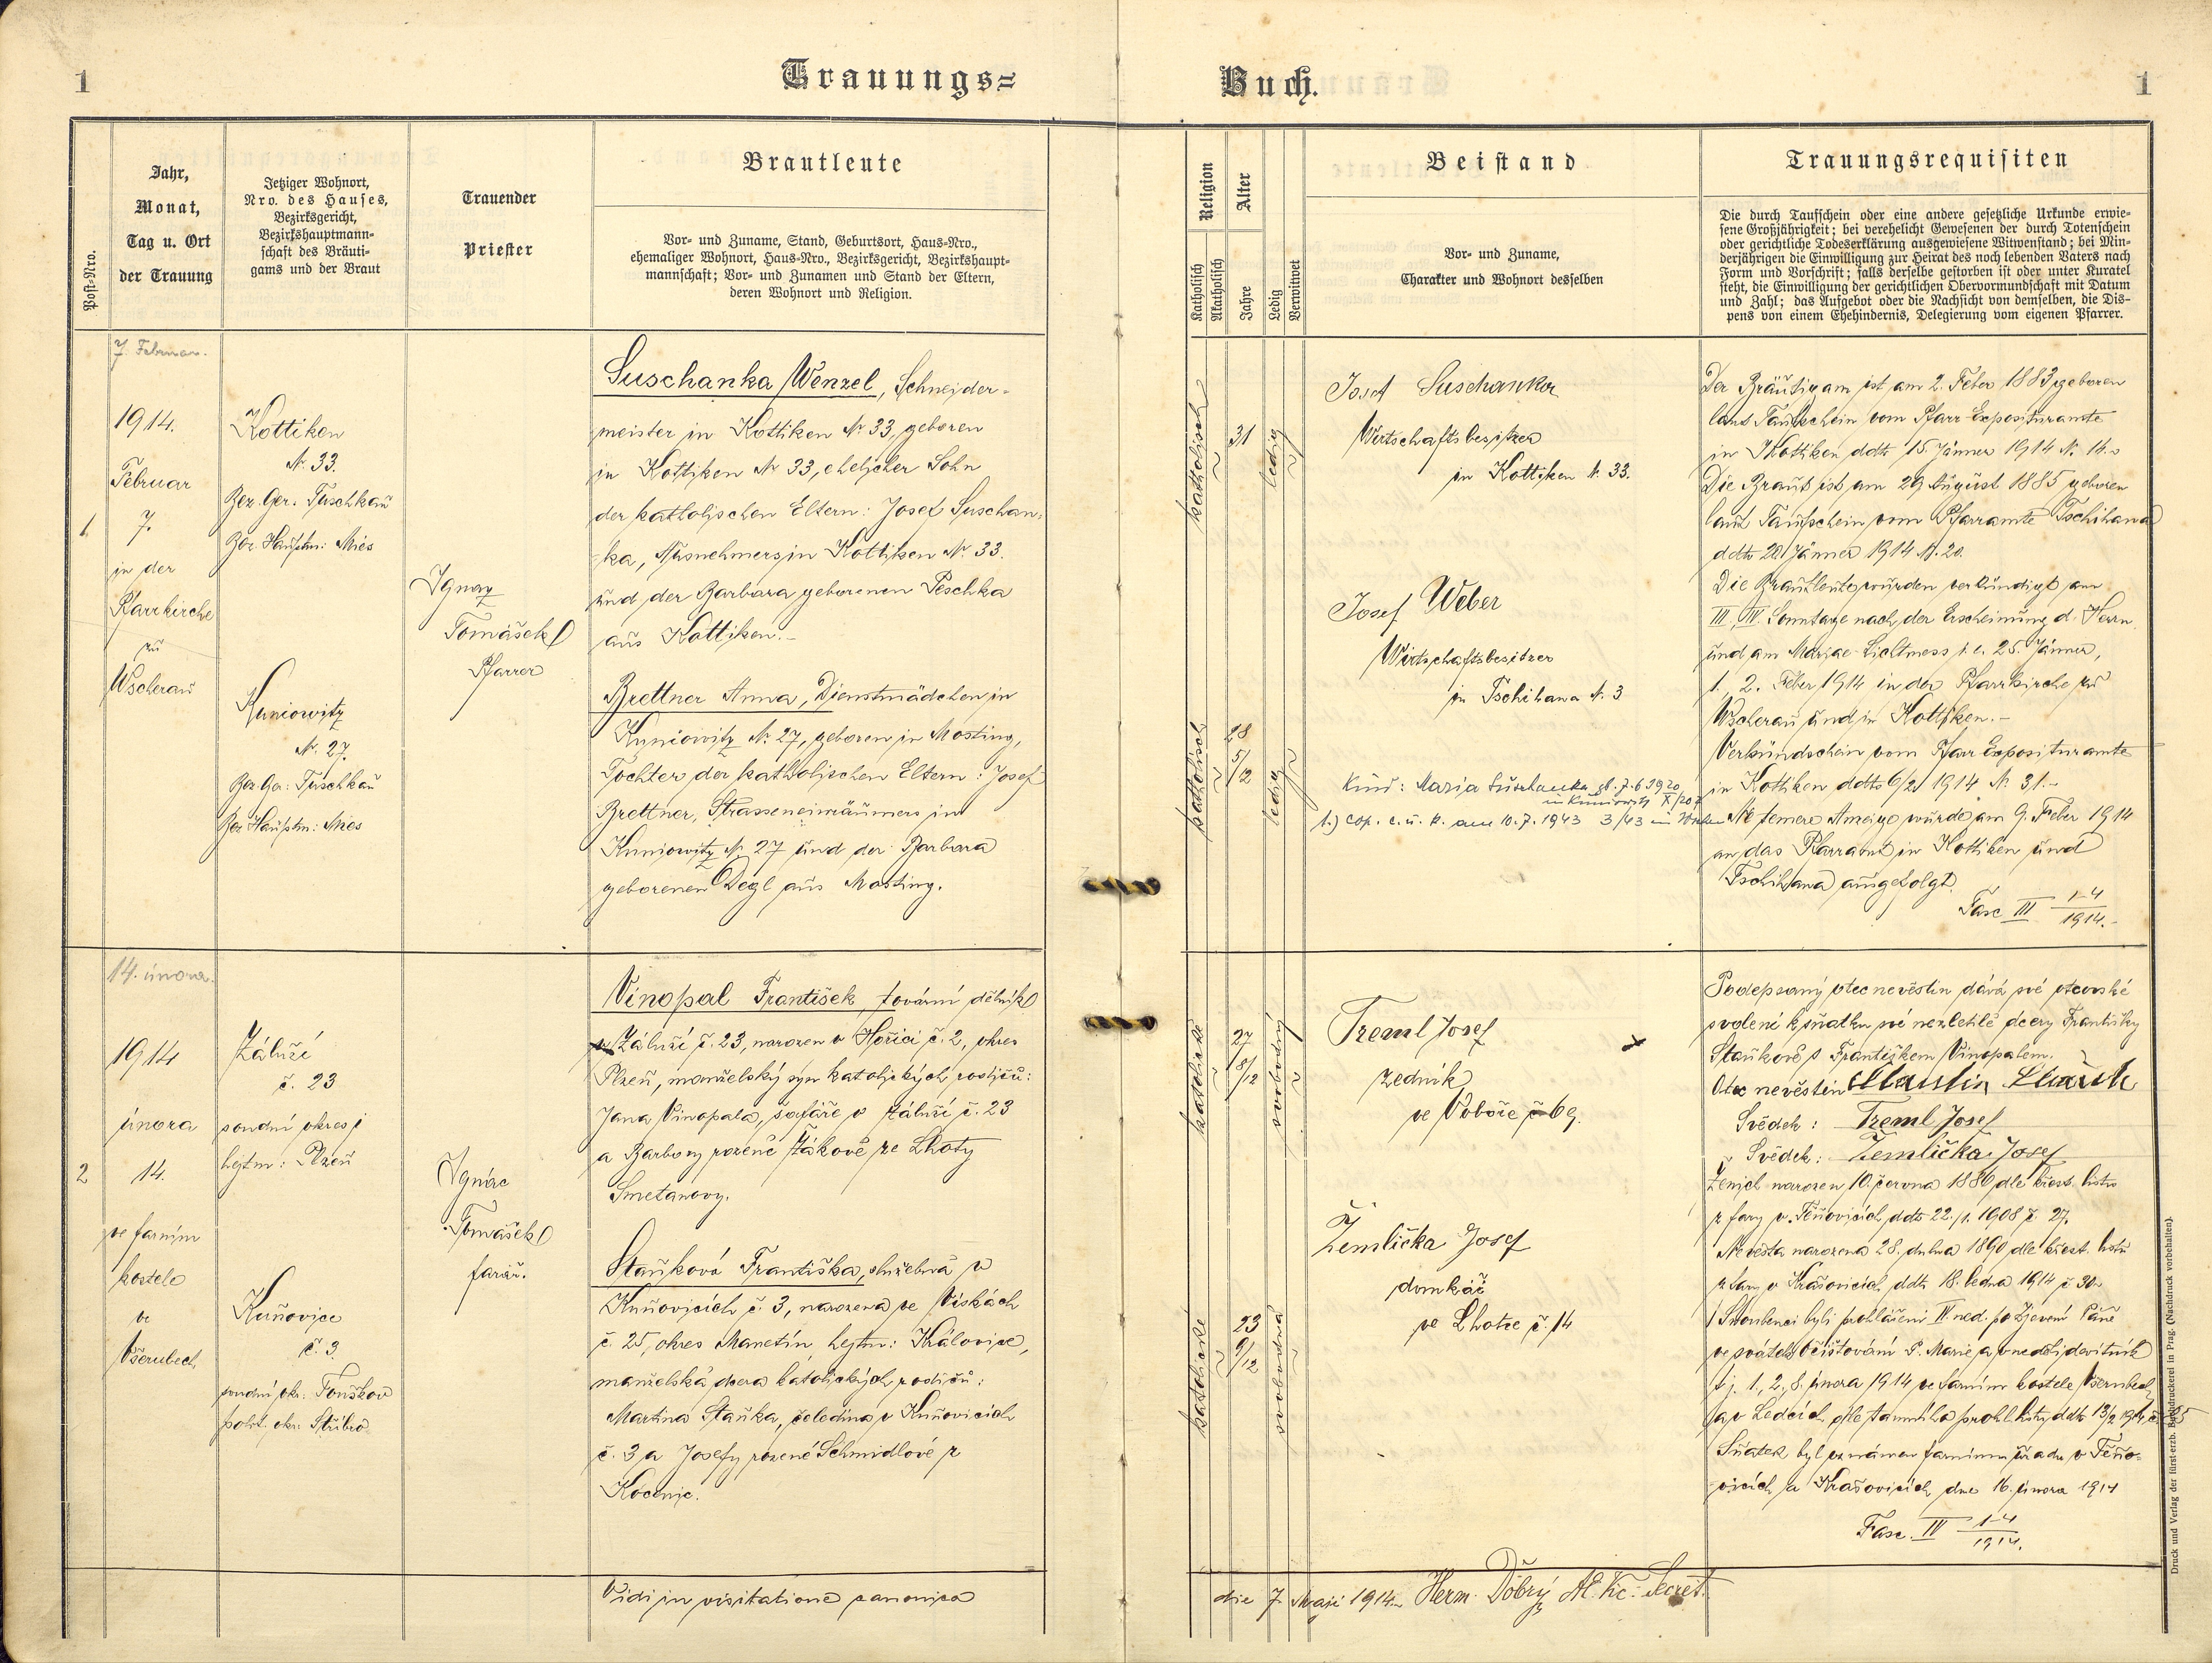 1
Trauungs=
Buch.
1
Post-Nro.
Jahr,
Monat,
Tag u. Ort
der Trauung
Jetziger Wohnort,
Nro. des Hauses,
Bezirksgericht,
Bezirkshauptmann-
schaft des Bräuti-
gams und der Braut
Trauender
Priester
Brautleute
Vor- und Zuname, Stand, Geburtsort, Haus-Nro.,
ehemaliger Wohnort, Haus-Nro., Bezirksgericht, Bezirkshaupt-
mannschaft; Vor- und Zunamen und Stand der Eltern,
deren Wohnort und Religion.
Religion
Katholisch
Akatholisch
Alter
Jahre
Ledig
Verwitwet
Beistand
Vor- und Zuname,
Charakter und Wohnort desselben
Trauungsrequisiten
Die durch Taufschein oder eine andere gesetzliche Urkunde erwie-
sene Großjährigkeit; bei verehelicht Gewesenen der durch Totenschein
oder gerichtliche Todeserklärung ausgewiesene Witwenstand; bei Min-
derjährigen die Einwilligung zur Heirat des noch lebenden Vaters nach
Form und Vorschrift; falls derselbe gestorben ist oder unter Kuratel
steht, die Einwilligung der gerichtlichen Obervormundschaft mit Datum
und Zahl; das Aufgebot oder die Nachsicht von demselben, die Dis-
pens von einem Ehehindernis, Delegierung vom eigenen Pfarrer.
7. Februar.
1.
1914.
Februar
7.
in der
Pfarrkirche
zu
Wscherau
Kottiken
Nr. 33.
Bez. Ger. Tuschkau
Bez. Hauptm: Mies
Kuniowitz
Nr. 27.
Bez. Ger: Tuschkau
Bez Hauptm: Mies
Ignaz
Tomášek
Pfarrer
Suschanka Wenzel, Schneider-
meister in Kottiken Nr. 33, geboren
in Kottiken Nr 33, ehelicher Sohn
der katholischen Eltern: Josef Suschan-
ka, Ausnehmers in Kottiken Nr. 33.
und der Barbara geborenen Peschka
aus Kottiken.-
Brettner Anna, Dienstmädchen in
Kuniowitz Nr. 27, geboren in Mosting,
Tochter der katholischen Eltern: Josef
Brettner, Strasseneinräumers in
Kuniowitz Nr. 27 und der Barbara
geborenen Degl aus Mosting.
katholisch
31
ledig
katholisch
28
5/12
ledig
Josef Suschanka
Wirtschaftsbesitzer
in Kottiken Nr. 33.
Josef Weber
Wirtschaftsbesitzer
in Tschihana Nr. 3
Kind: Maria Suschanka gb. 7.6.1920
in Kuniowitz X/207
1.) cop. c. ü. k. am 10.7.1943 3/43 in
Der Bräutigam ist am 2. Feber 1883 geboren
laut Taufschein vom Pfarr-Expositurante
in Kottiken ddto 15. Jänner 1914 Nr. 14.
Die Braut ist am 29 August 1885 geboren
laut Taufschein vom Pfarramte Tschihana
ddto 20. Jänner 1914 N. 20.
Die Brautleute wurden verkündigt am
III, IV. Sonntage nach der Erscheinung d. Herrn
und am Mariae-Lichtmess i. e. 25. Jänner,
1. 2. Feber 1914 in der Pfarrkirche zu
Wscherau und in Kottiken.-
Verkündschein vom Pfarr Expositurante
in Kottiken ddto 6/2 1914 Nr. 31.-
Ne temere Anzeige wurde am 9. Feber 1914
an das Pfarramt in Kottiken und
Tschihana ausgefolgt.
Fasc III 1-4/1914.-
14. února.
2
1914
února
14.
ve farním
kostele
ve
Všerubech
Záluží
č. 23
soudní okres i
hejtm: Plzeň
Kuňovice
č. 3.
soudní okr: Touškov
polit. okr: Stříbro
Ignác
Tomášek
farář.
Vinopal František, tovární dělník
v Záluží č. 23, narozen v Hořici č. 2, okres
Plzeň, manželský syn katolických rodičů:
Jana Vinopala, šafáře v Záluží č. 23
a Barbory rozené Žákové ze Lhoty
Smetanovy.
Staňková Františka, služebná v
Kuňovicích č. 3, narozena ve Vískách
č. 25, okres Manetín, hejtm: Kralovice,
manželská dcera katolických rodičů:
Martina Staňka, čeledína v Kuňovicích
č. 3 a Josefy rozené Schmidlové z
Kocenic.
katolické
27
8/12
svobodný
katolické
23
9/12
svobodná
Treml Josef
zedník
ve Oboře č 69.
Žemlička Josef
domkář
ve Lhotce č. 14
Podepsaný otec nevěstin dává své otcovské
svolení k sňatku své nezletilé dcery Františky
Staňkové s Františkem Vinopalem.
Otec nevěstin Martin Staněk
Svědek: Treml Josef
Svědek: Žemlička Josef
Ženich narozen 10. června 1886 dle křest. listu
z fary v Těňovicích ddto 22./1. 1908 č. 27.
Nevěsta narozena 28. dubna 1890 dle křest. listu
z fary v Krašovicích, ddto 18. ledna 1914 č 30.
Snoubenci byli prohlášeni IV. ned. po Zjevení Páně
ve svátek Očišťování P. Marie a v neděli devítník
t. j. 1., 2., 8. února 1914 ve farním kostele Všerubech
a v Ledcích, dle tamního prohl. listu ddto 13/2 1914 č. 85
Sňatek byl oznámen farnímu úřadu v Těňo-
vicích a Krašovicích dne 16. února 1914
Fasc. IV 1-4/1914.
Vidi in visitatione canonica
die 7. Maji 1914. Herm. Dobrý Al. Vic. Secret.
Druck und Verlag der fürst-erzb. Buchdruckerei in Prag. (Nachdruck vorbehalten).